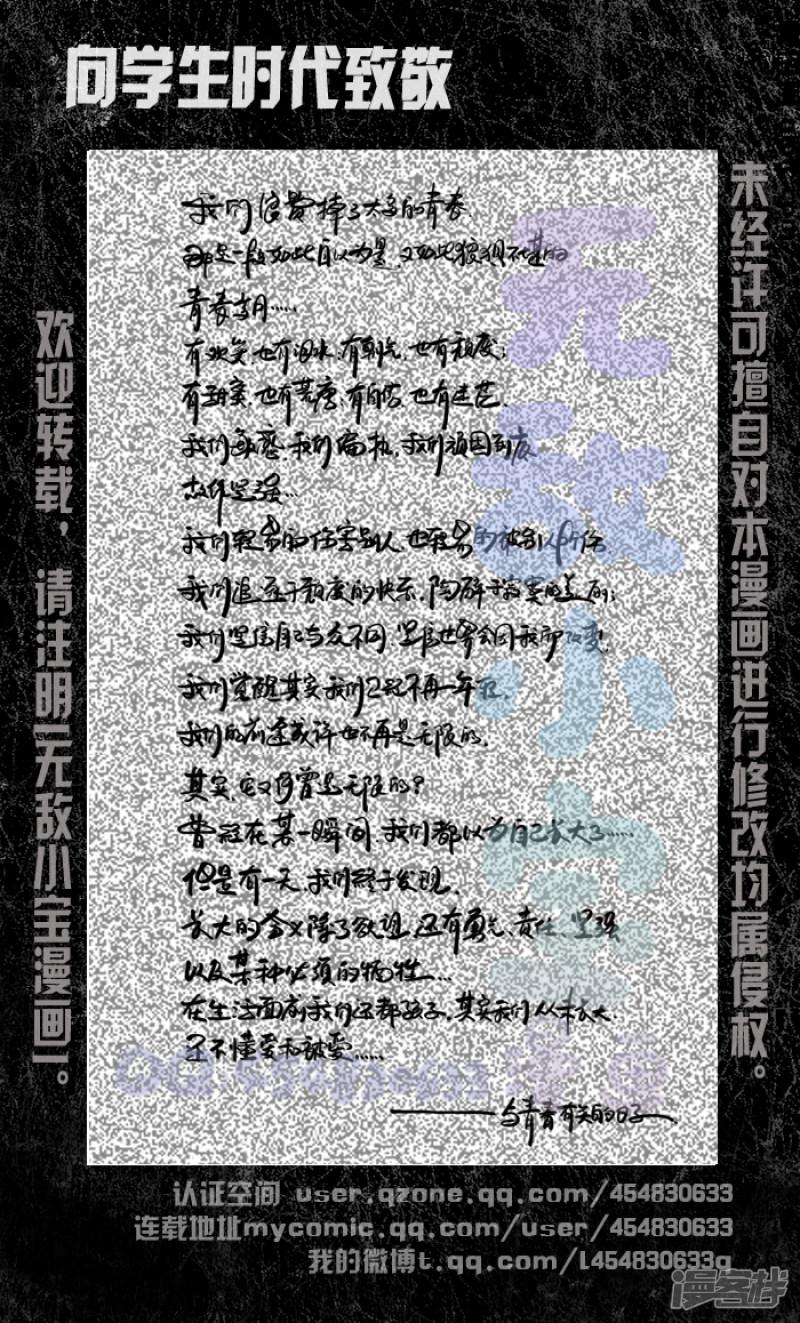 向学生时代致敬
我们浪费掉了太多的青春
那是一段如此自以为是、又如此狼狈不堪的
青春岁月……
有欢笑、也有泪水、有朝气、也有颓废；
有甜蜜、也有荒唐、有自信、也有迷茫.
我们敏感、我们偏执、我们顽固到底
故作坚强…
我们轻易的伤害别人、也轻易的被别人所伤
我们追逐于颓废的快乐、陶醉于寂寞的美丽；
我们坚信自己与众不同、坚信世界会因我而改变.
我们觉醒其实我们已经不再年轻.
我们的前途或许也不再是无限的.
其实、它又何曾是无限的？
曾经在某一瞬间、我们都以为自己长大了……
但是有一天、我们终于发现.
长大的含义除了欲望、还有勇气、责任、坚强
以及某种必须的牺牲…
在生活面前我们还都孩子、其实我们从未长大
还不懂爱和被爱……
——与青春有关的日子
未经许可擅自对本漫画进行修改均属侵权。
欢迎转载，请注明[无敌小宝漫画]。
无敌小宝
认证空间 user.qzone.qq.com/454830633
连载地址mycomic.qq.com/user/454830633
我的微博t.qq.com/l454830633q
漫客栈